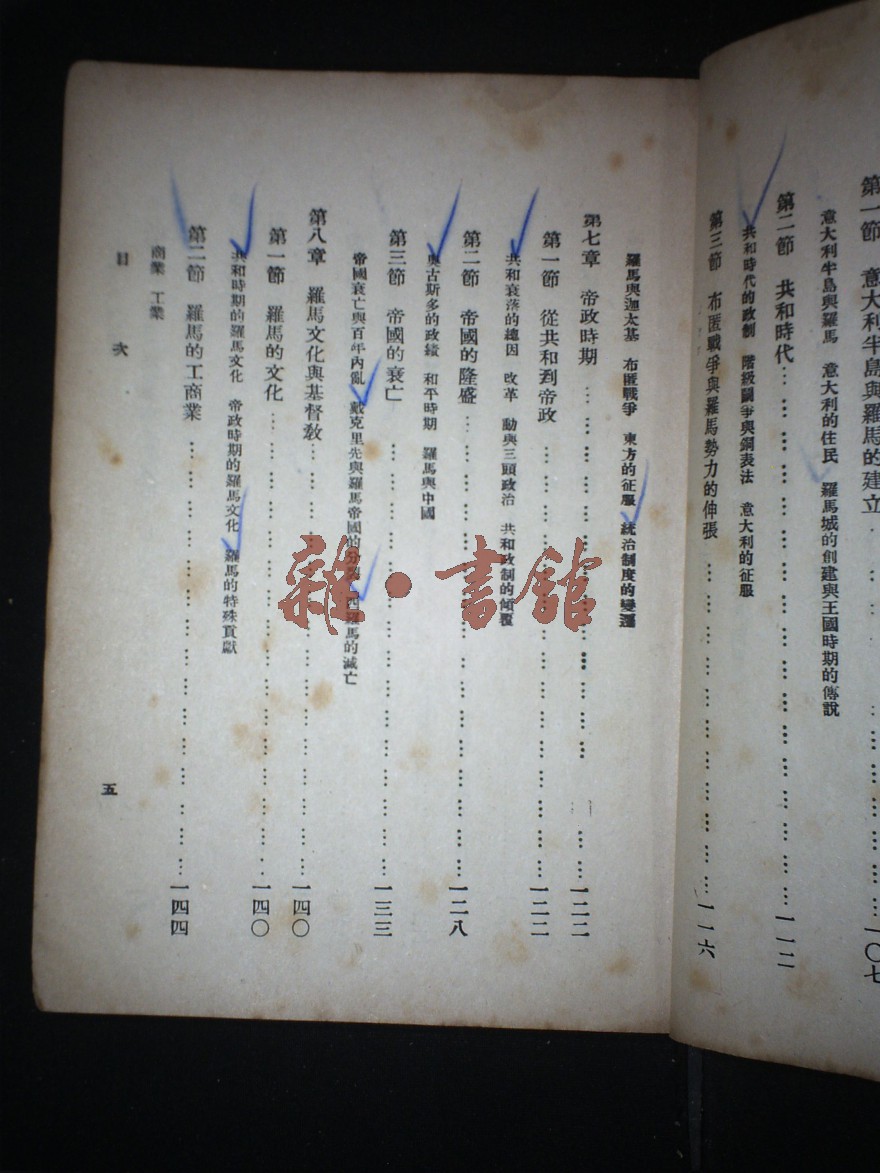 第一節 意大利半島與羅馬的建立……一〇七
意大利半島與羅馬 意大利的住民 羅馬城的創建與王國時期的傳說
第二節 共和時代……一一二
共和時代的政制 階級鬬爭與銅表法 意大利的征服
第三節 布匿戰爭與羅馬勢力的伸張……一一六
羅馬與迦太基 布匿戰爭 東方的征服 統治制度的變遷
第七章 帝政時期……一二二
第一節 從共和到帝政……一二二
共和衰落的總因 改革 動與三頭政治 共和政制的傾覆
第二節 帝國的隆盛……一二八
奧古斯多的政績 和平時期 羅馬與中國
第三節 帝國的衰亡……一三三
帝國衰亡與百年內亂 戴克里先與羅馬帝國的分裂 西羅馬的滅亡
第八章 羅馬文化與基督敎……一四〇
第一節 羅馬的文化……一四〇
共和時期的羅馬文化 帝政時期的羅馬文化 羅馬的特殊貢獻
第二節 羅馬的工商業……一四四
商業 工業
目次
五
雜·書館